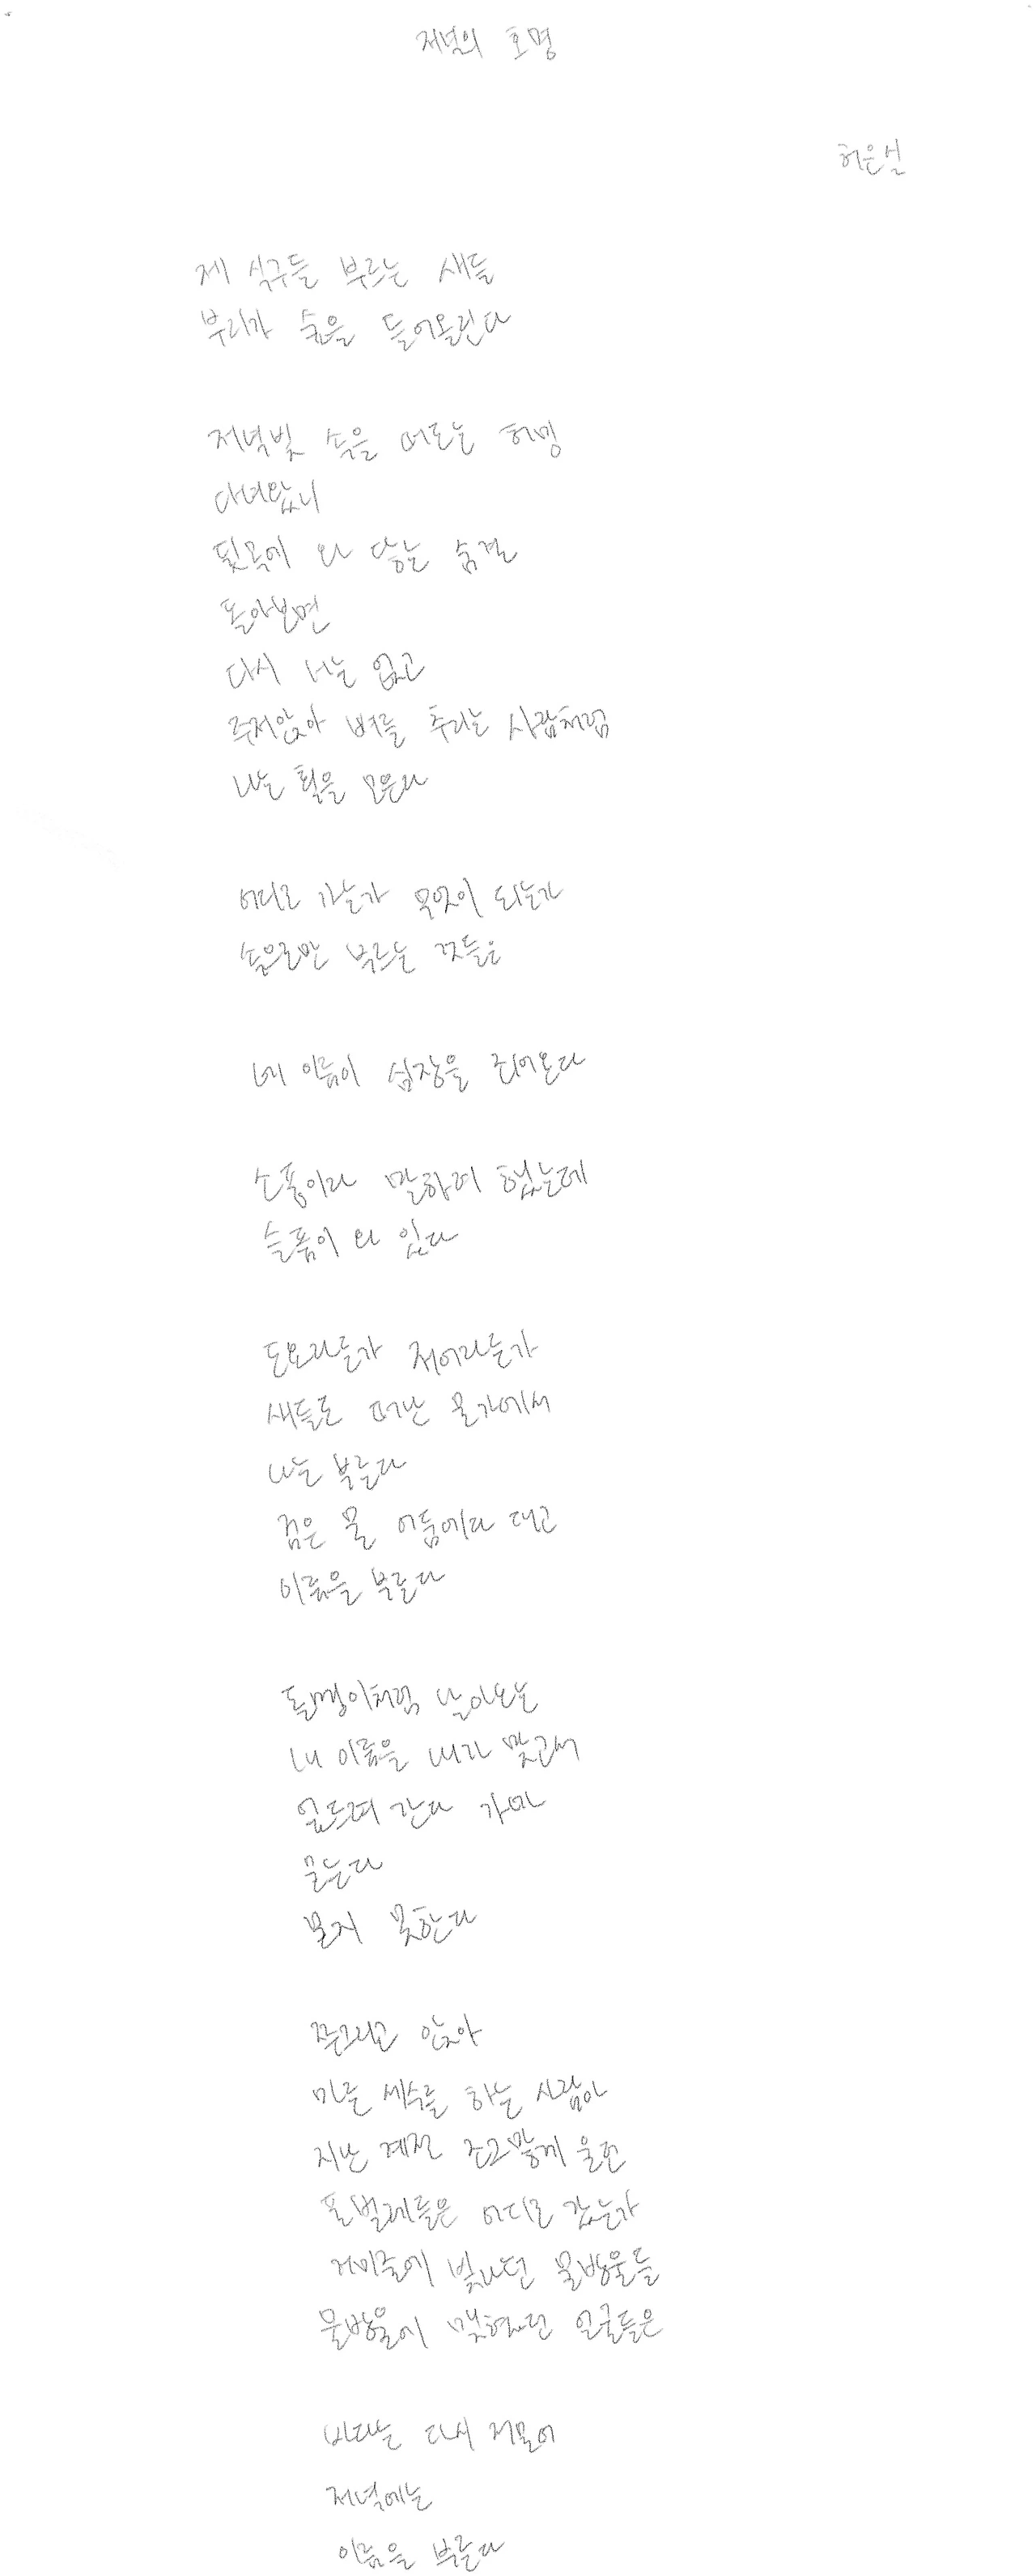 저녁의 호명
허은실
제 식구들 부르는 새들
부리가 숲을 들어올린다
저녁빛 속을 떠도는 허밍
다녀왔니
뒷목에 와 닿는 숨결
돌아보면
다시 너는 없고
주저앉아 뼈를 추리는 사람처럼
나는 획을 모은다
어디로 가는가 무엇이 되는가
속으로만 부르는 것들은
네 이름이 심장을 죄어온다
소풍이라 말하려 했는데
슬픔이 와 있다
도요라든가 저어라든가
새들도 떠난 물가에서
나는 부른다
검은 물 어둠에다 대고
이름을 부른다
돌멩이처럼 날아오는
내 이름을 내가 맞고서
엎드려 간다 가마
묻는다
묻지 못한다
쭈그리고 앉아
마른 세수를 하는 사람아
지난 계절 조그맣게 울던
풀벌레들은 어디로 갔는가
거미줄에 빛나던 물방울들
물방울에 맺혔던 얼굴들은
바다는 다시 저물어
저녁에는
이름을 부른다